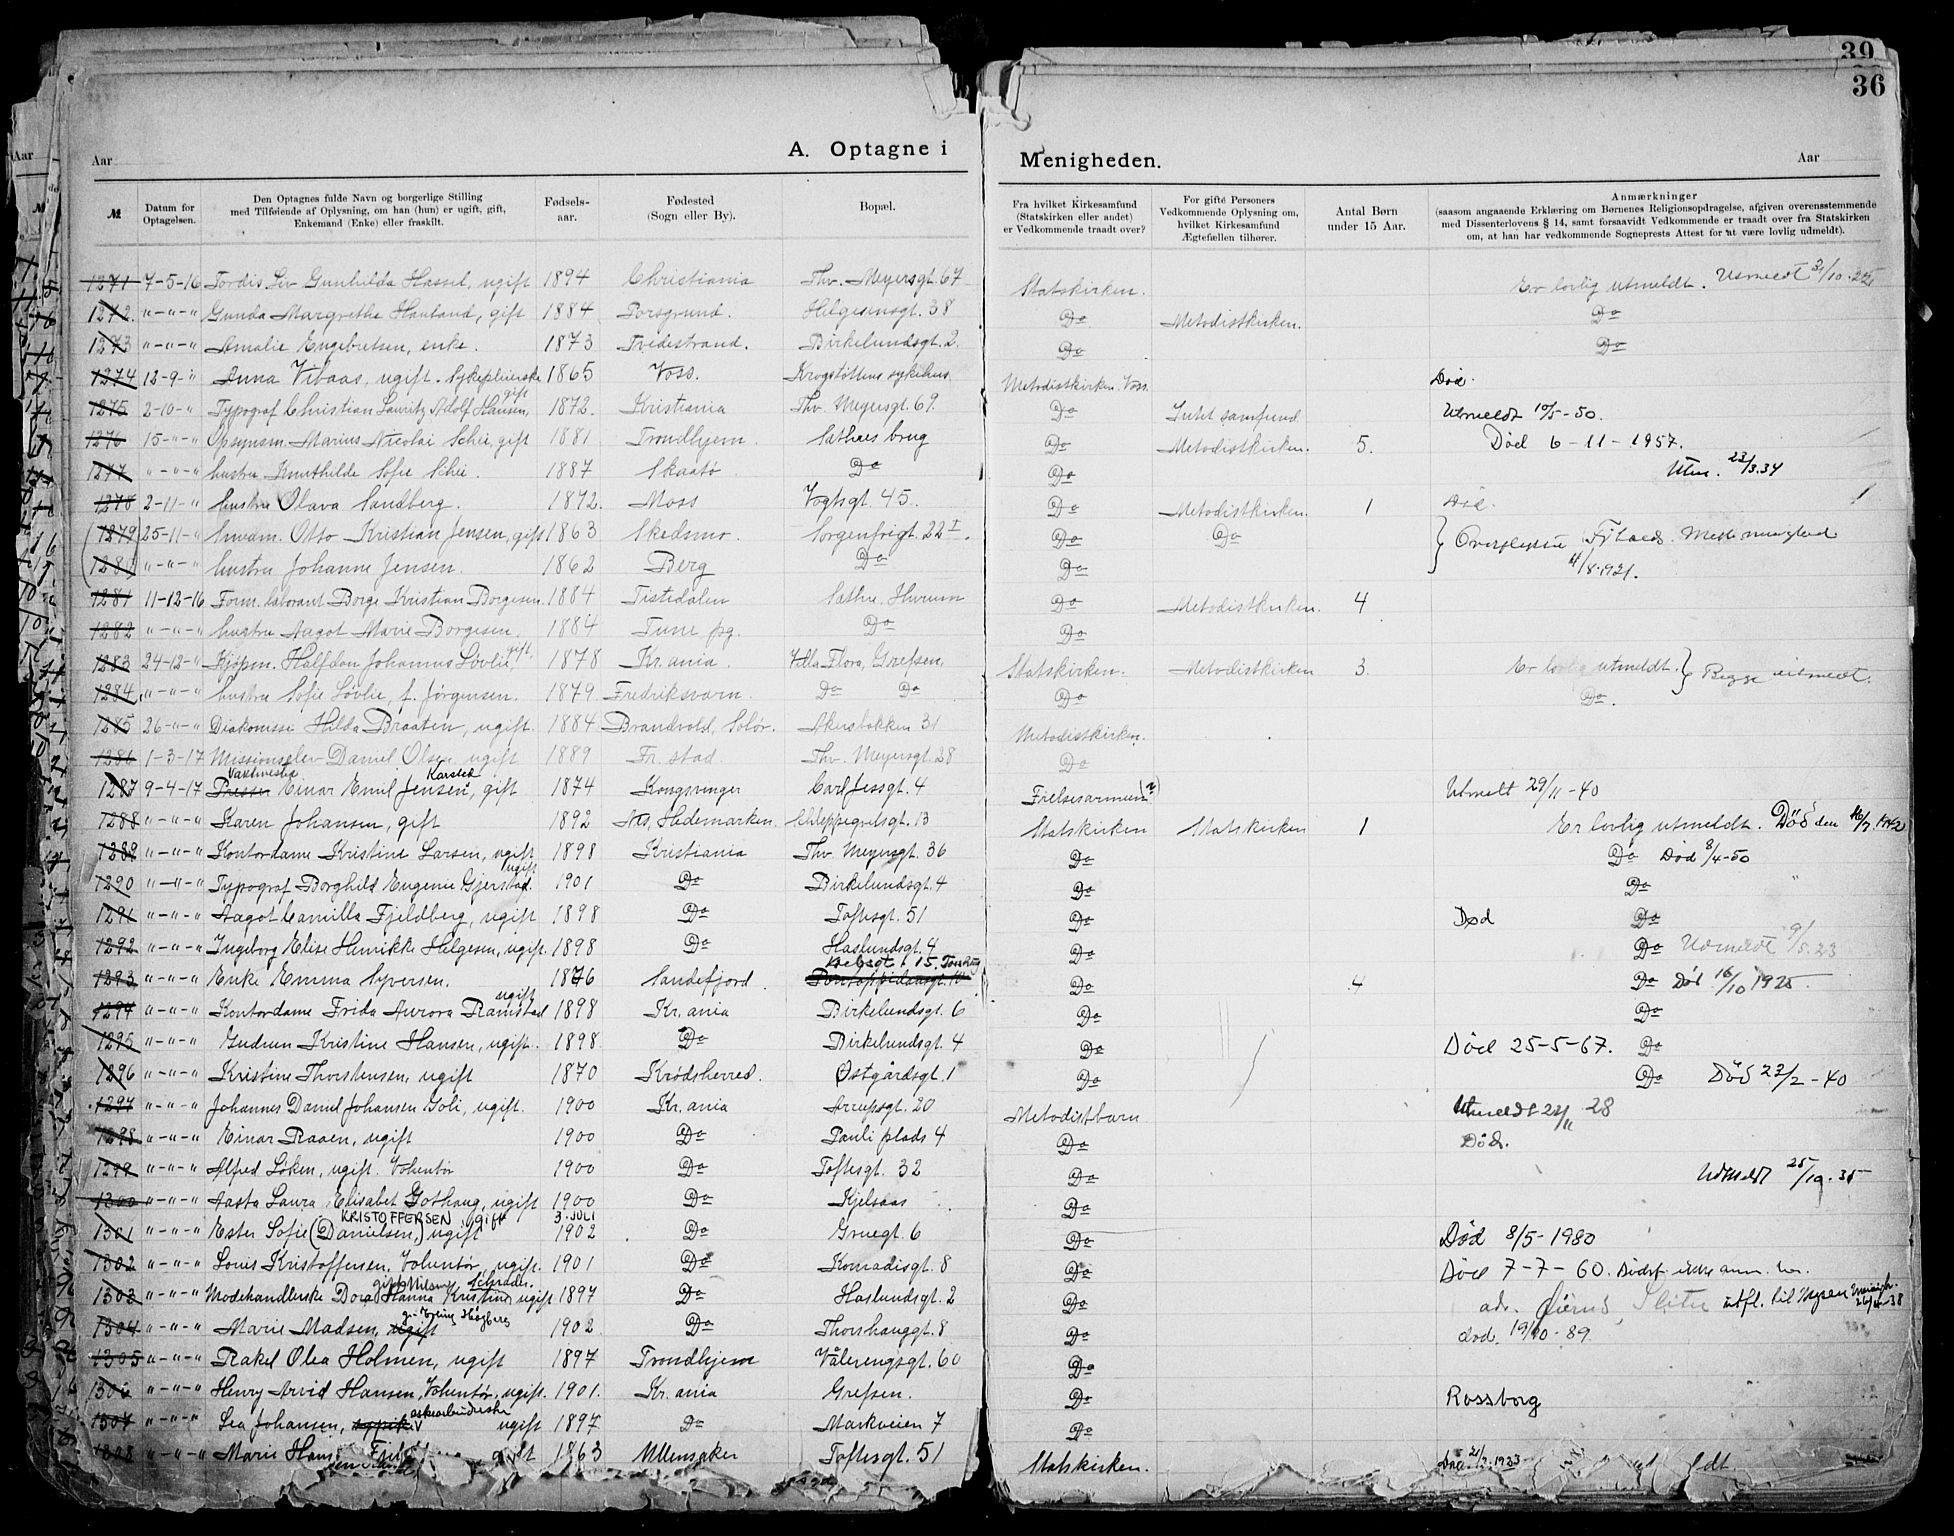 39
36
Aar
Aar
A. Optagne i Menigheden.
Aar
№ | Datum for Optagelsen. | Den Optagnes fulde Navn og borgerlige Stilling med Tilføiende af Oplysning, om han (hun) er ugift, gift, Enkemand (Enke) eller fraskilt. | Fødsels-aar. | Fødested (Sogn eller By). | Bopæl. | Fra hvilket Kirkesamfund (Statskirken eller andet) er Vedkommende traadt over? | For gifte Personers Vedkommende Oplysning om, hvilket Kirkesamfund Ægtefællen tilhører. | Antal Børn under 15 Aar. | Anmærkninger (saasom angaaende Erklæring om Børnenes Religionsopdragelse, afgiven overensstemmende med Dissenterlovens § 14, samt forsaavidt Vedkommende er traadt over fra Statskirken om, at han har vedkommende Sogneprests Attest for at være lovlig udmeldt).
1271 7-5-16 Tordis Gunhilda Hassel, ugift 1894 Christiania Thv. Meyersgt. 67 Statskirken. Er lovlig utmeldt. Utmeldt
1272. "-"-" Gunda Margrethe Hauland, gift 1884 Porsgrund. Helgesensgt. 38 Do Metodistkirken. Do
1273 "-"-" Amalie Engebretsen, enke. 1873 Tvedestrand. Birkelundsgt. 2. Do Do
1274 12-9-" Anna Vibaas, ugift. Sykepleierske 1865 Voss. Krogstøttens sykehus Metodistkirken. Voss. Død.
1275 2-10-" Typograf Christian Lauritz Adolf Hansen, gift 1872. Kristiania Thv. Meyersgt. 69. Do Intet samfund Utmeldt 10/5-50.
1276 15-"-" Opsynsm. Marius Nicolai Schei, gift 1881 Trondhjem. Sathres brug Do Metodistkirken. 5. Død 6-11-1957.
1277 "-"-" hustru Knuthilde Sofie Schei. 1887 Skaatø Do Do Utm. 23/3.34
1278 2-11-" hustru Olava Sandberg. 1872. Moss Vogtsgt. 45. Do Metodistkirken. 1 Død.
1279 25-11-" Otto Kristian Jensen, gift 1863 Skedsmo. Sorgenfrigt. 22 I. Do Do
1280 "-"-" hustru Johanne Jensen. 1862 Berg Do Do 4/8.1921.
1281 11-12-16 Form. laborant Borge Kristian Borgesen. 1884 Tistedalen Sathre. Hurum Do Metodistkirken. 4
1282 "-"-" hustru Aagot Marie Borgesen. 1884 Tune pg. Do Do
1283 24-12-" Kjøpm. Halfdan Johannes Løvlie, gift. 1878 Kr.ania. Villa Flora, Grefsen. Statskirken. Metodistkirken 3. Er lovlig utmeldt. } Begge utmeldt.
1284 "-"-" hustru Sofie Løvlie, f. Jørgensen. 1879 Fredriksværn. Do Do Do Do.
1285 26-"-" Diakonisse Hilda Braaten, ugift. 1884 Brandvold, Solør. Akersbakken 31 Metodistkirken.
1286 1-3-17 Missionselev Daniel Olsen, ugift 1889 Fr.stad Thv. Meyersgt. 28 Do
1287 9-4-17 Presser Einar Emil Jensen, Karsted gift 1874 Kongsvinger Carl Jessgt. 4 Frelsesarmeen (?) Utmelt 29/11-40
1288 "-"-" Karen Johansen, gift 1892 Nes, Hedemarken. Schleppegrelsgt. 13 Statskirken Statskirken 1 Er lovlig utmeldt. Død den
1289 "-"-" Kontordame Kristine Larsen, ugift 1898 Kristiania Thv. Meyersgt. 36 Do Do Død 8/4-50
1290 "-"-" Typograf Borghild Eugenie Gjerstad. ugift 1901 Do Birkelundsgt. 4 Do Do
1291 "-"-" Aagot Camilla Fjeldberg, ugift 1898 Do Toftesgt. 51 Do Død Do
1292. "-"-" Ingeborg Elise Henrikke Helgesen, ugift. 1898 Do Haslundsgt. 4 Do Do Utmeldt 9/5.23
1293 "-"-" Enke Emma Syversen. 1876 Sandefjord. Pontoppidansgt. 15. Do 4 Do Død 16/10 1925.
1294 "-"-" Kontordame Frida Aurora Ramstad ugift 1898 Kr.ania Birkelundsgt. 6 Do Do
1295 "-"-" Gudrun Kristine Hansen, ugift. 1898 Do Birkelundsgt. 4 Do Død 25-5-67. Do
1296 "-"-" Kristine Thorstensen, ugift 1870 Krødsherred. Østgårdsgt. 1 Do Do Død 23/2-40
1297 "-"-" Johannes Daniel Johansen Goli, ugift. 1900 Kr.ania Arupsgt. 20 Metodistbarn Utmeldt 28
1298 "-"-" Einar Raaen, ugift 1900 Do Pauli plads 4 Do Død.
1299 "-"-" Alfred Løken, ugift. Volentør 1900 Do Toftesgt. 32 Do Utmeldt
1300 "-"-" Aasta Laura Elisabet Gothaug, ugift 1900 Do Kjelsaas Do
1301 "-"-" Ester Sofie (Danielsen,) KRISTOFFERSEN gift ugift 3. JULI 1902 Do Gruegt. 6 Do Død 8/5-1980
1302 "-"-" Louis Kristoffersen, Volentør, ugift. 1901 Do Konradisgt. 8 Do Død 7-7-60.
1303 "-"-" Modehandlerske Dora Hanna Kristine ugift 1897 Do Haslundsgt. 2 Do
1304 "-"-" Marie Madsen, ugift 1902. Do Thorshauggt. 8 Do død. 19/10-89.
1305 "-"-" Rakel Olea Holmen, ugift 1897 Trondhjem Vålerengsgt. 60 Do
1306 "-"-" Henry Arvid Hansen, Volentør, ugift. 1901. Kr.ania Grefsen. Do Rossborg
1307 "-"-" Lea Johansen, ugift 1897 Do Markveien 7 Do
1308 "-"-" Marie 1863 Ullensaker Toftesgt. 51 Statskirken.